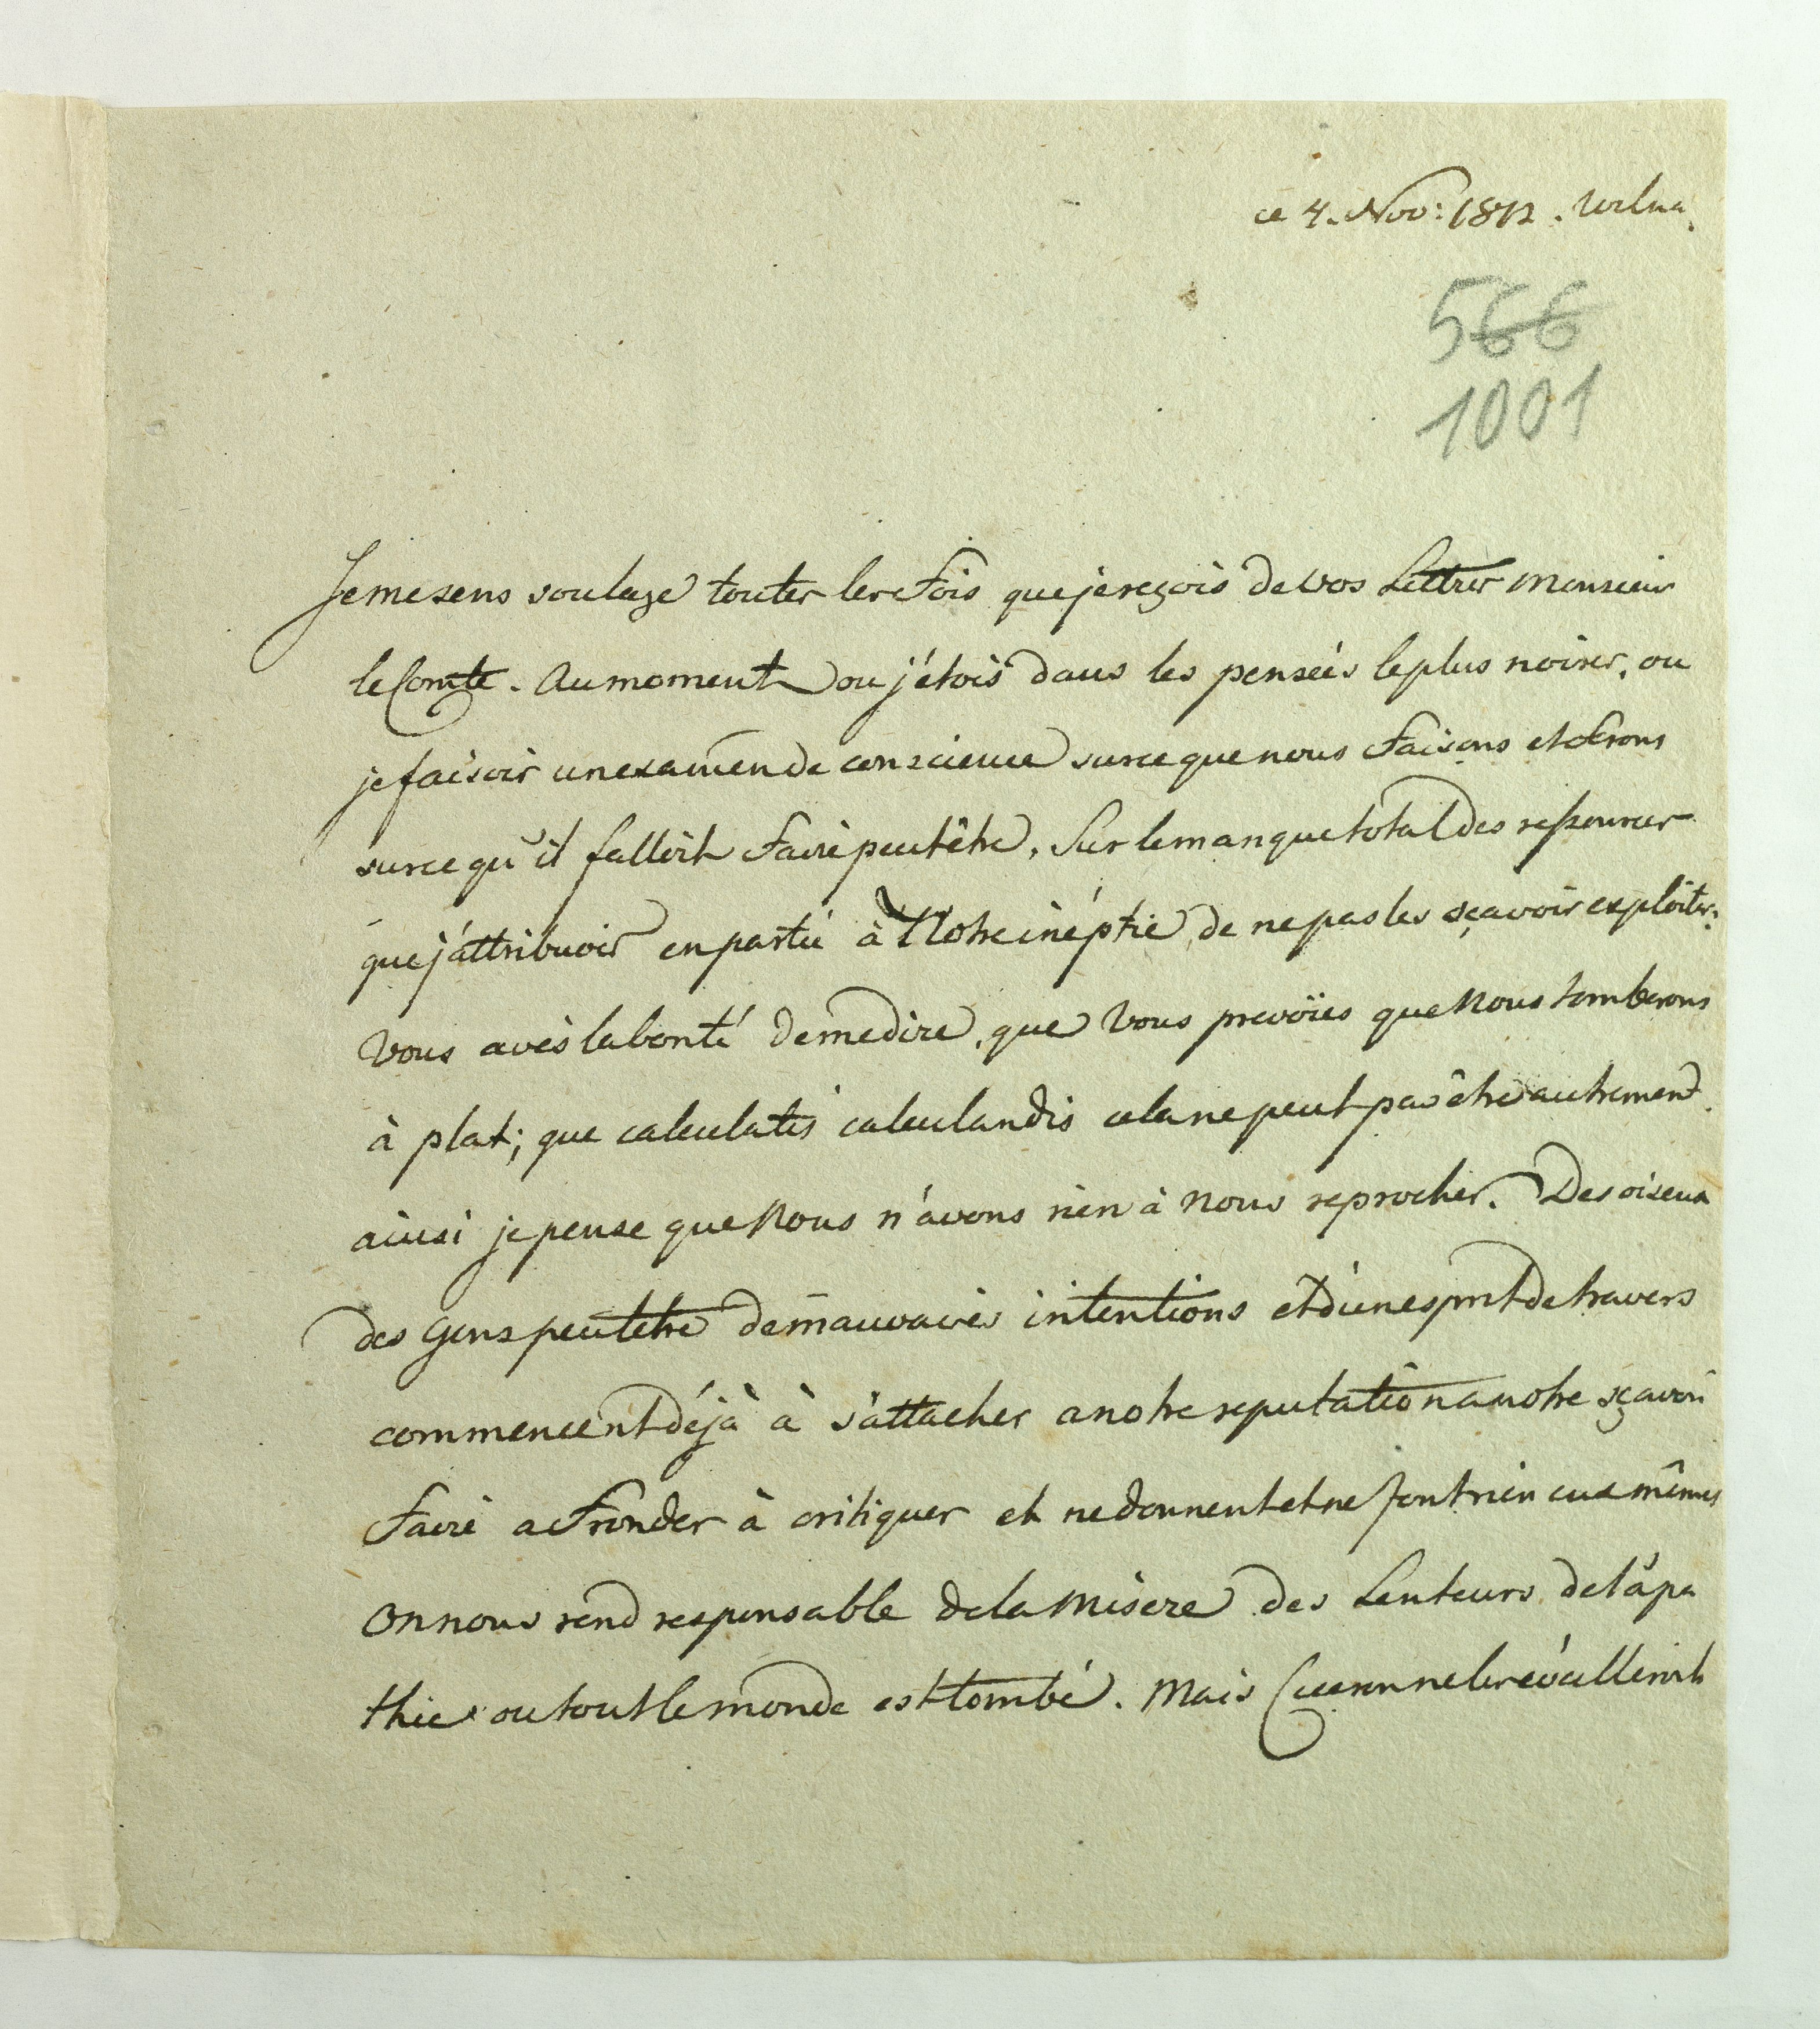 ce 4. Nov: 1812. Wilna.
566
1001
Je me sens soulagé toutes les fois que je reçois de vos Lettres Monsieur
le Comte. Au moment ou j'étois dans les pensées le plus noires, ou
je faisois un examen de conscience sur ce que nous faisons et ferons
sur ce qu'il falloit faire peutêtre, Sur le manque total des ressources
que j'attribuois en partie à Notre inéptie de ne pas les sçavoir exploiter.
Vous avès la bonté de me dire, que Vous prevoïes que Nous tomberons
à plat; que calculatis calculandis cela ne peut pas être autrement.
ainsi je pense que Nous n'avons rien à Nous reprocher. Des oiseux
des Gens peutetre de mauvaises intentions et d'un esprit de travers
commencent déjà à s'attacher a notre reputation a notre sçavoir
faire a fronder à critiquer et ne donnent et ne font rien eux mêmes
On nous rend responsable de la Misere des Lenteurs de l'apa
thie ou tout le monde est tombé. Mais